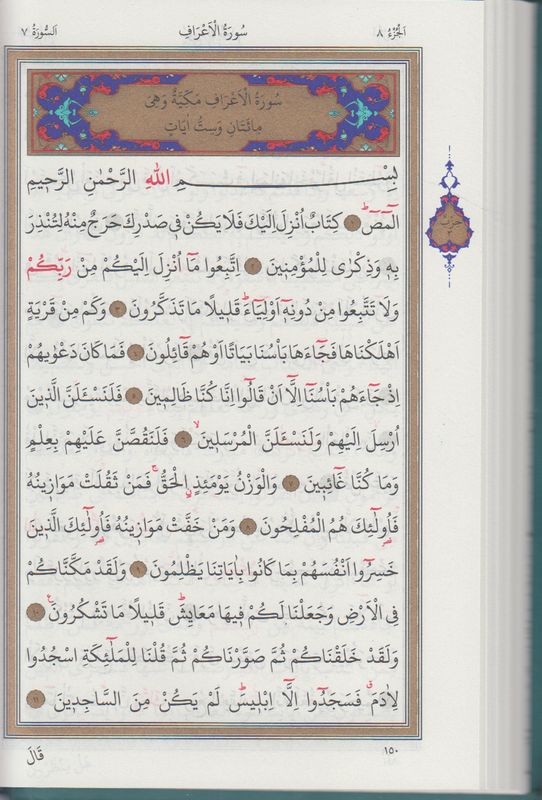 اَلْجُزْءُ ٨
سُورَةُ الْاَعْرَافِ
اَلسُّورَةُ ٧
سُورَةُ الْاَعْرَافِ مَكِّيَّةٌ وَهِىَ
مِائَتَانِ وَسِتُّ اٰيَاتٍ
بِسْــــــــمِ اللّٰهِ الرَّحْمٰنِ الرَّحٖيمِ
الٓمٓصٓ ۚ ﴿١﴾ كِتَابٌ اُنْزِلَ اِلَيْكَ فَلَا يَكُنْ فٖى صَدْرِكَ حَرَجٌ مِنْهُ لِتُنْذِرَ
بِهٖ وَذِكْرٰى لِلْمُؤْمِنٖينَ ﴿٢﴾ اِتَّبِعُوا مَٓا اُنْزِلَ اِلَيْكُمْ مِنْ رَبِّكُمْ
وَلَا تَتَّبِعُوا مِنْ دُونِهٖٓ اَوْلِيَٓاءَ ۜ قَلٖيلًا مَا تَذَكَّرُونَ ﴿٣﴾ وَكَمْ مِنْ قَرْيَةٍ
اَهْلَكْنَاهَا فَجَٓاءَهَا بَأْسُنَا بَيَاتًا اَوْ هُمْ قَٓائِلُونَ ﴿٤﴾ فَمَا كَانَ دَعْوٰيهُمْ
اِذْ جَٓاءَهُمْ بَأْسُنَٓا اِلَّٓا اَنْ قَالُٓوا اِنَّا كُنَّا ظَالِمٖينَ ﴿٥﴾ فَلَنَسْـَٔلَنَّ الَّذٖينَ
اُرْسِلَ اِلَيْهِمْ وَلَنَسْـَٔلَنَّ الْمُرْسَلٖينَ ۙ ﴿٦﴾ فَلَنَقُصَّنَّ عَلَيْهِمْ بِعِلْمٍ
وَمَا كُنَّا غَٓائِبٖينَ ﴿٧﴾ وَالْوَزْنُ يَوْمَئِذٍ الْحَقُّ ۚ فَمَنْ ثَقُلَتْ مَوَازٖينُهُ
فَاُو۬لٰٓئِكَ هُمُ الْمُفْلِحُونَ ﴿٨﴾ وَمَنْ خَفَّتْ مَوَازٖينُهُ فَاُو۬لٰٓئِكَ الَّذٖينَ
خَسِرُٓوا اَنْفُسَهُمْ بِمَا كَانُوا بِاٰيَاتِنَا يَظْلِمُونَ ﴿٩﴾ وَلَقَدْ مَكَّنَّاكُمْ
فِى الْاَرْضِ وَجَعَلْنَا لَكُمْ فٖيهَا مَعَايِشَ ۜ قَلٖيلًا مَا تَشْكُرُونَ ۟ ﴿١٠﴾
وَلَقَدْ خَلَقْنَاكُمْ ثُمَّ صَوَّرْنَاكُمْ ثُمَّ قُلْنَا لِلْمَلٰٓئِكَةِ اسْجُدُوا
لِاٰدَمَ ۗ فَسَجَدُٓوا اِلَّٓا اِبْلٖيسَ ۜ لَمْ يَكُنْ مِنَ السَّاجِدٖينَ ﴿١١﴾
حِزْب
١٥٠
قَالَ